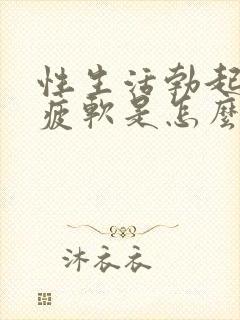 性生活勃起
疲軟是怎麼
沐衣衣